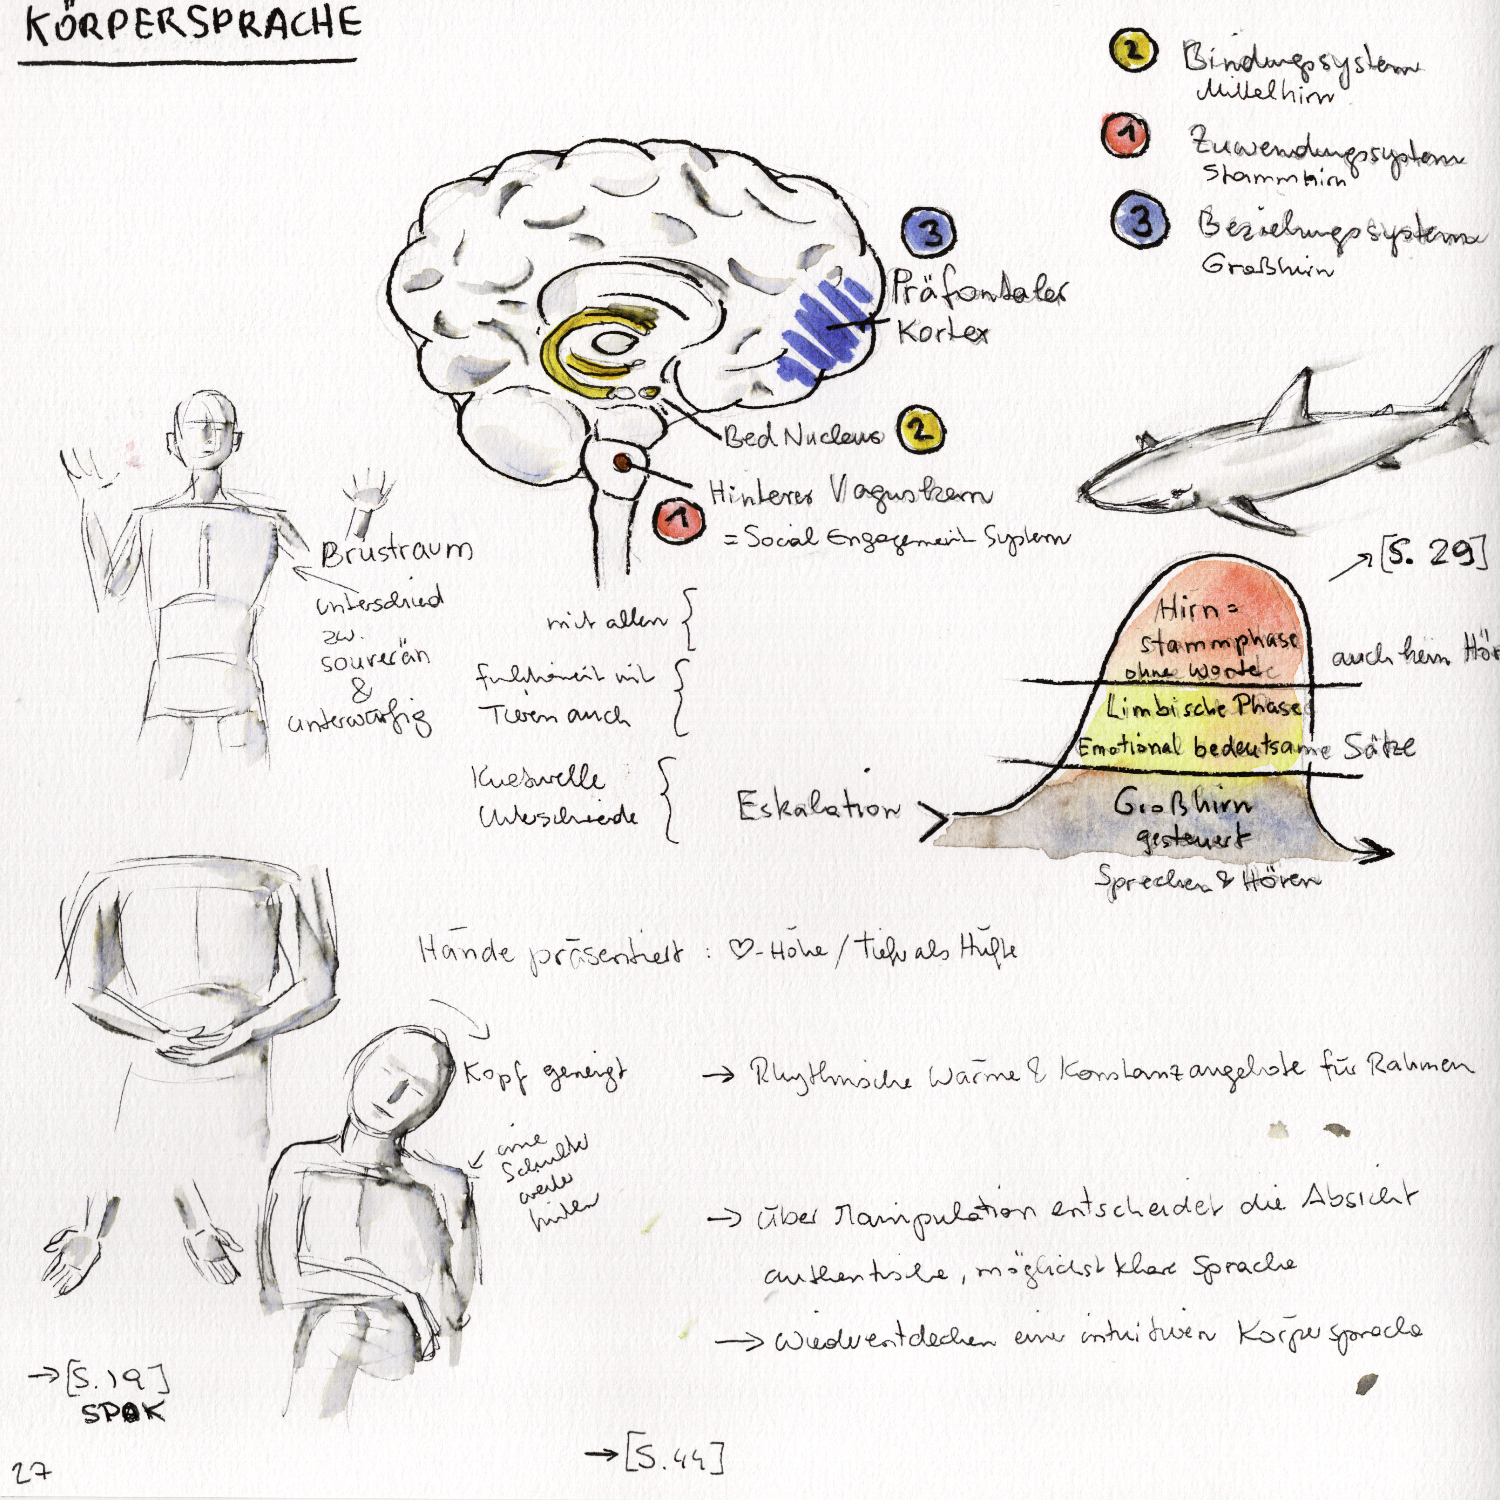 KÖRPERSPRACHE
2 Bindungssystem
Mittelhirn
1 Zuwendungssystem
Stammhirn
3 Beziehungssystem
Großhirn
3
Präfontaler
Kortex
Bed Nucleus 2
Hinterer Vaguskern
1 = Social Engagement System
Brustraum
unterschied
zw.
souverän
&
unterwürfig
mit allen
funktioniert mit
Tieren auch
Kulturelle
Unterschiede
→ [S. 29]
Hirn=
stammphase
ohne Worte
auch kein Hör
Limbische Phase
Emotional bedeutsame Sätze
Großhirn
gesteuert
Sprechen & Hören
Eskalation
Hände präsentiert : ♡-Höhe / Tiefer als Hüfte
Kopf geneigt
eine
Schulter
weiter
hinten
→ Rhythmische Wärme & Konstanzangebote für Rahmen
→ Über Manipulation entscheidet die Absicht
authentische, möglichst klare Sprache
→ Wiederentdecken einer intuitiven Körpersprache
→ [S. 19]
SPOK
→ [S. 44]
27